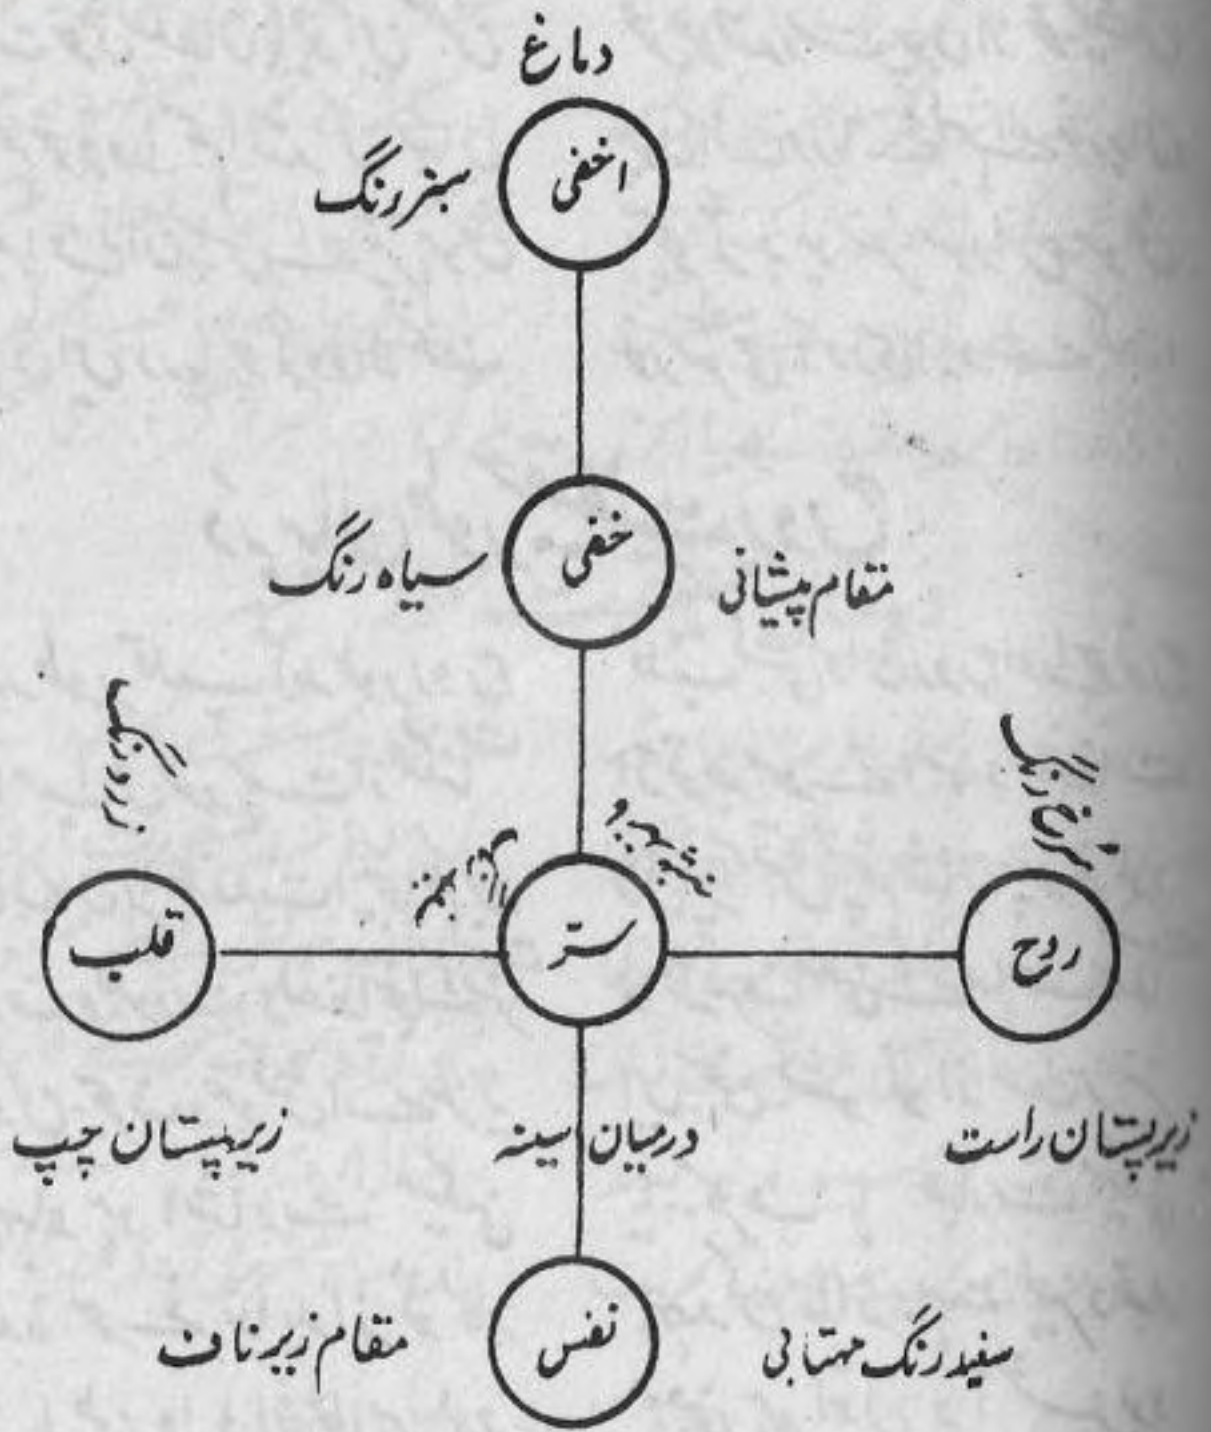 دماغ
اخفی
سبز رنگ
خفی
سیاہ رنگ
مقام پیشانی
سرخ رنگ
زرد رنگ
روح
سرّ
قلب
زیر پستان راست
درمیان سینہ
زیر پستان چپ
نفس
سفید رنگ مہتابی
مقام زیر ناف